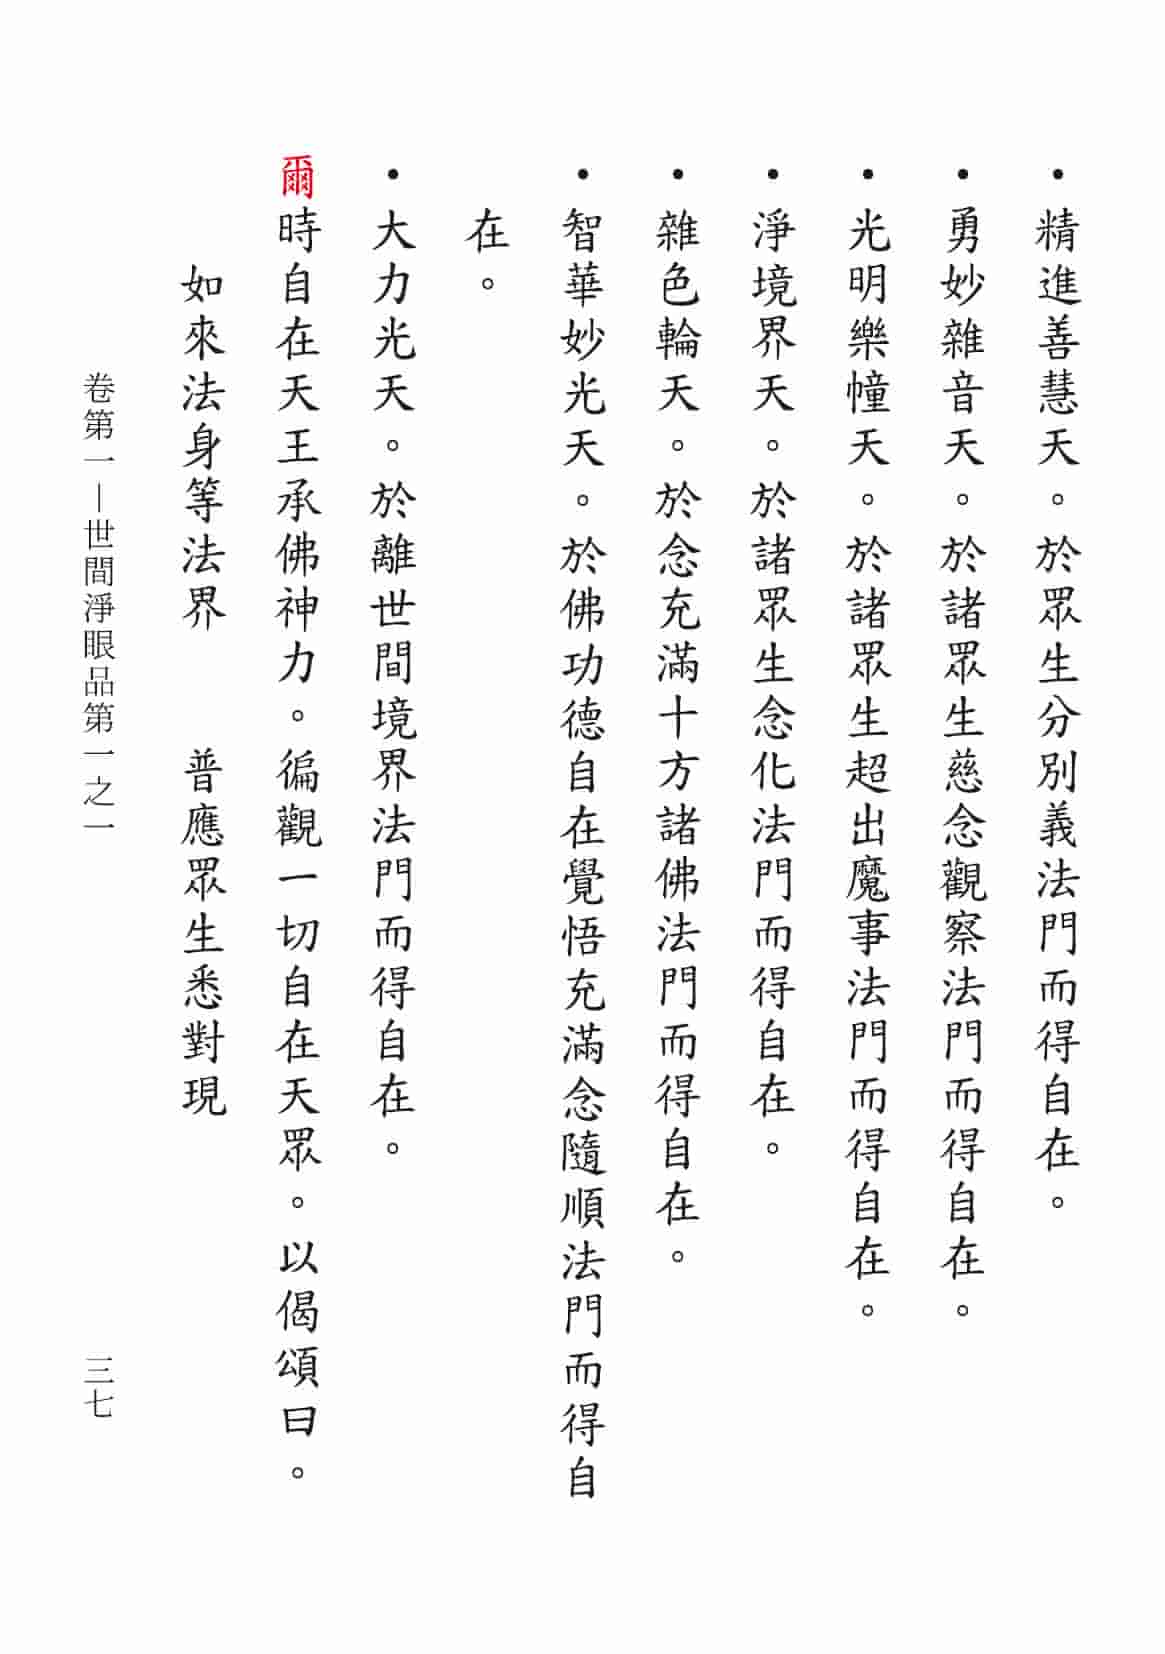 •精進善慧天。於眾生分別義法門而得自在。
•勇妙雜音天。於諸眾生慈念觀察法門而得自在。
•光明樂幢天。於諸眾生超出魔事法門而得自在。
•淨境界天。於諸眾生念化法門而得自在。
•雜色輪天。於念充滿十方諸佛法門而得自在。
•智華妙光天。於佛功德自在覺悟充滿念隨順法門而得自
在。
•大力光天。於離世間境界法門而得自在。
爾時自在天王承佛神力。徧觀一切自在天眾。以偈頌曰。
如來法身等法界　普應眾生悉對現
卷第一—世間淨眼品第一之一　三七